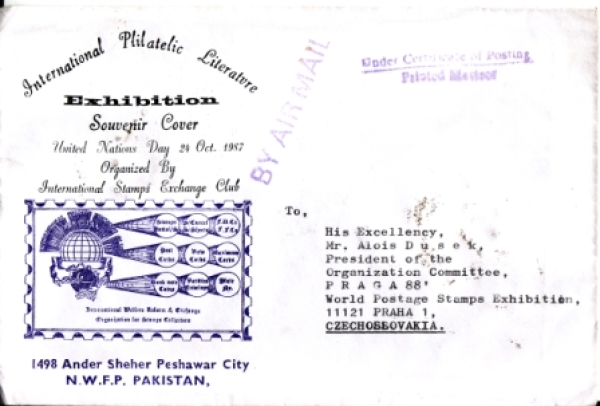 International Philatelic Literature
Exhibition
Souvenir Cover
United Nations Day 24 Oct. 1987
Organized By
International Stamps Exchange Club
International Welfare Reform & Exchange
Organization for Stamps Collectors
1498 Ander Sheher Peshawar City
N.W.F.P. PAKISTAN,
BY AIR MAIL
Under Certificate of Posting
Printed Matter
To,
His Excellency,
Mr. Alois D u s e k,
President of the
Organization Committee,
P R A G A 88'
World Postage Stamps Exhibition,
11121 PRAHA 1,
CZECHOSSOVAKIA.